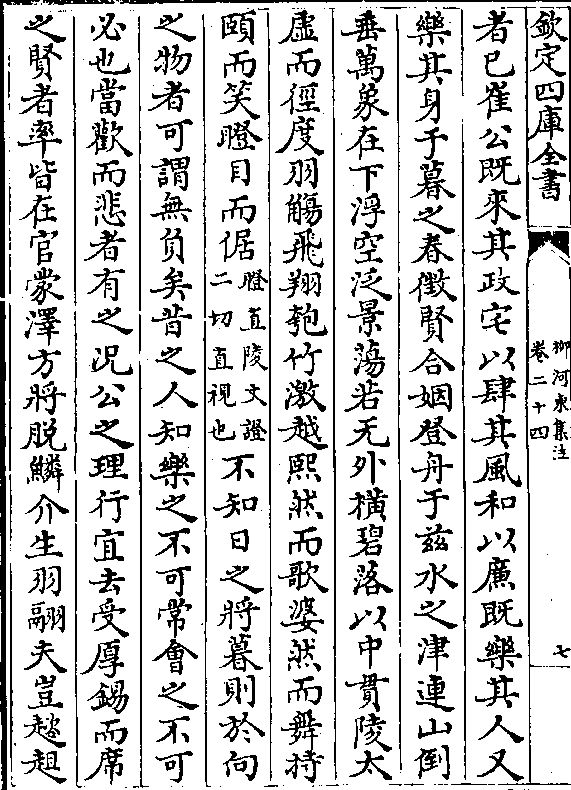 欽定四庫全書
柳河東集注
卷二十四
七
者已崔公既來其政宅以肆其風和以廉既樂其人又
樂其身于暮之春徵賢合姻登舟于兹水之津連山倒
垂萬象在下浮空泛景蕩若无外横碧落以中貫陵太
虛而徑度羽觴飛翔匏竹激越熙然而歌婆然而舞持
頤而笑瞪目而倨瞪直陵文證二切直視也不知日之將暮則於向
之物者可謂無負矣昔之人知樂之不可常會之不可
必也當歡而悲者有之况公之理行宜去受厚錫而席
之賢者率皆在官蒙澤方將脱鱗介生羽翮夫豈趑趄